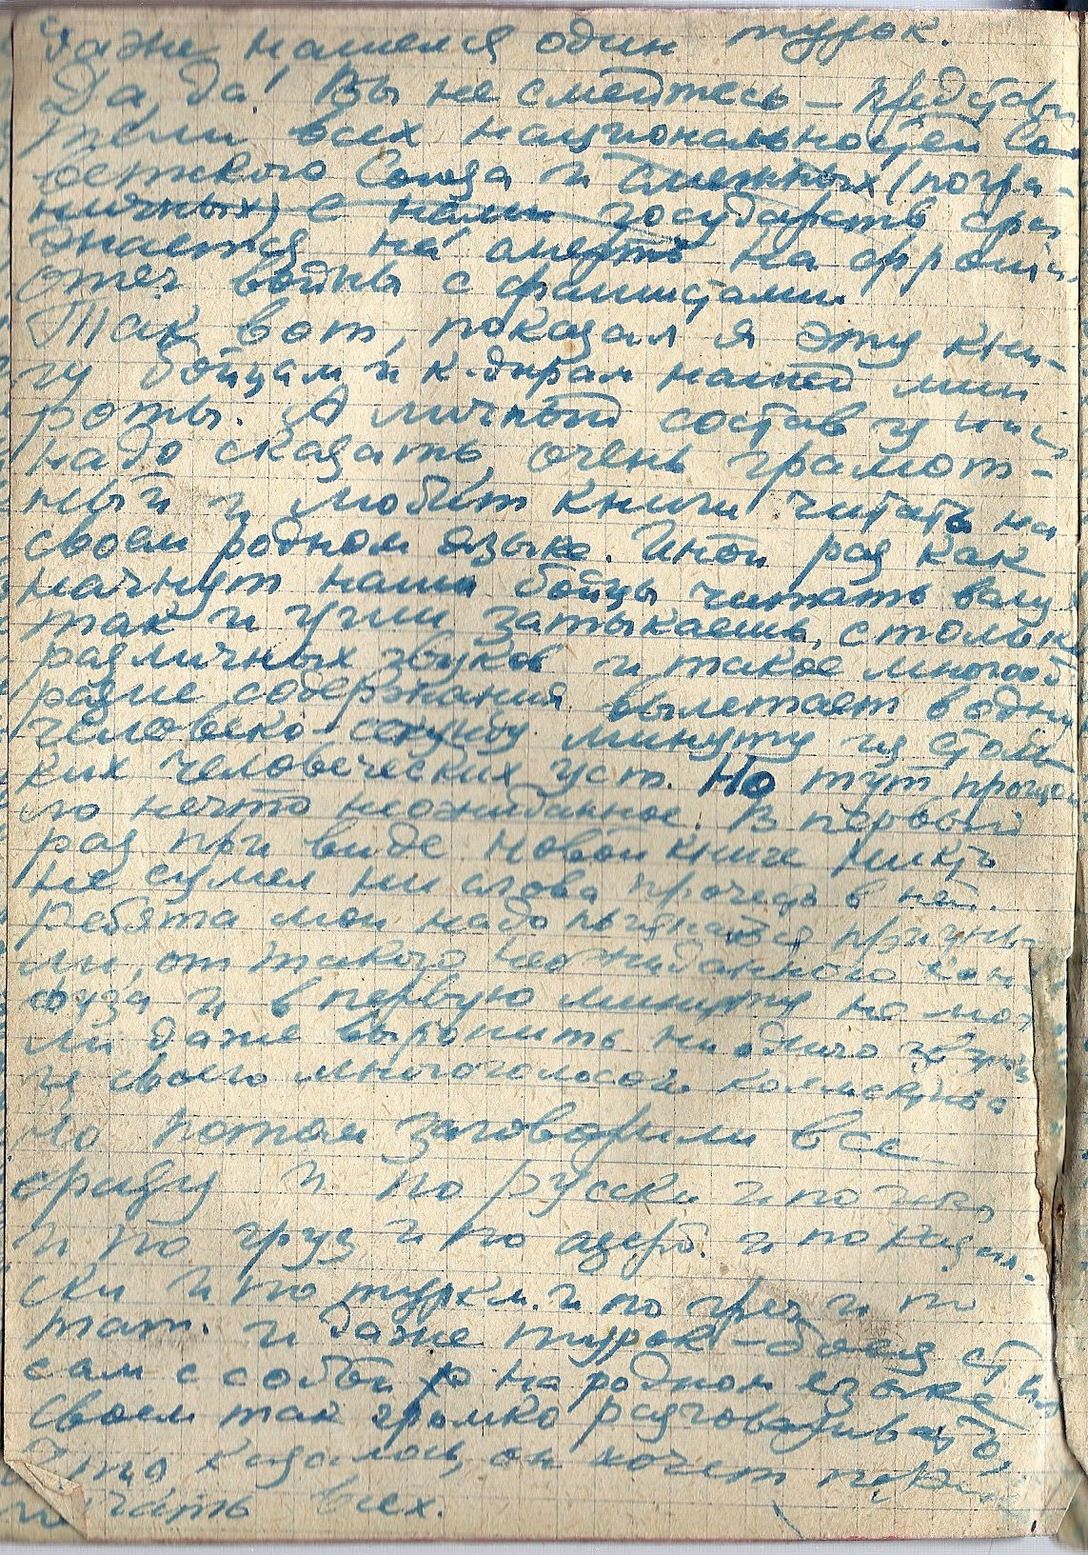 даже нашелся один турок.
Да, да! Вы не смейтесь – представи
тели всех национальностей Со
ветского Союза и смежных (погра-
ничных) с ними государств сра
жается на смерть на фронт
отеч войны с фашистами
Так вот, показал я эту кни-
гу бойцам и к-дирам нашей мин
роты. А личный состав у
надо сказать, очень грамот-
ный и любит книги читать на
своем родном языке. Иной раз как
начнут наши бойцы читать вслу
так и уши затыкаешь, столько
различных звуков и такое многооб
разие содержания вылетает в одну
человеко-секунду минуту из столь
ких человеческих уст. Но тут произош
ло нечто неожиданное. В первый
раз при виде новой книге никто
не сумел ни слова прочесть в ней.
Ребята мои надо признаться приуны
ли, от такого неожиданного кон
фуза и в первую минуту не мог
ли даже выронить ни одного звука
из своего многоголосого
Но потом заговорили все
сразу и по русски и по
и по груз и по азерб. и по
ски и по туркм. и по греч и по
тат. и даже турок – боец ст
сам с собой на родном языке
своем так громко разговаривать,
что казалось, он хочет
чать всех.